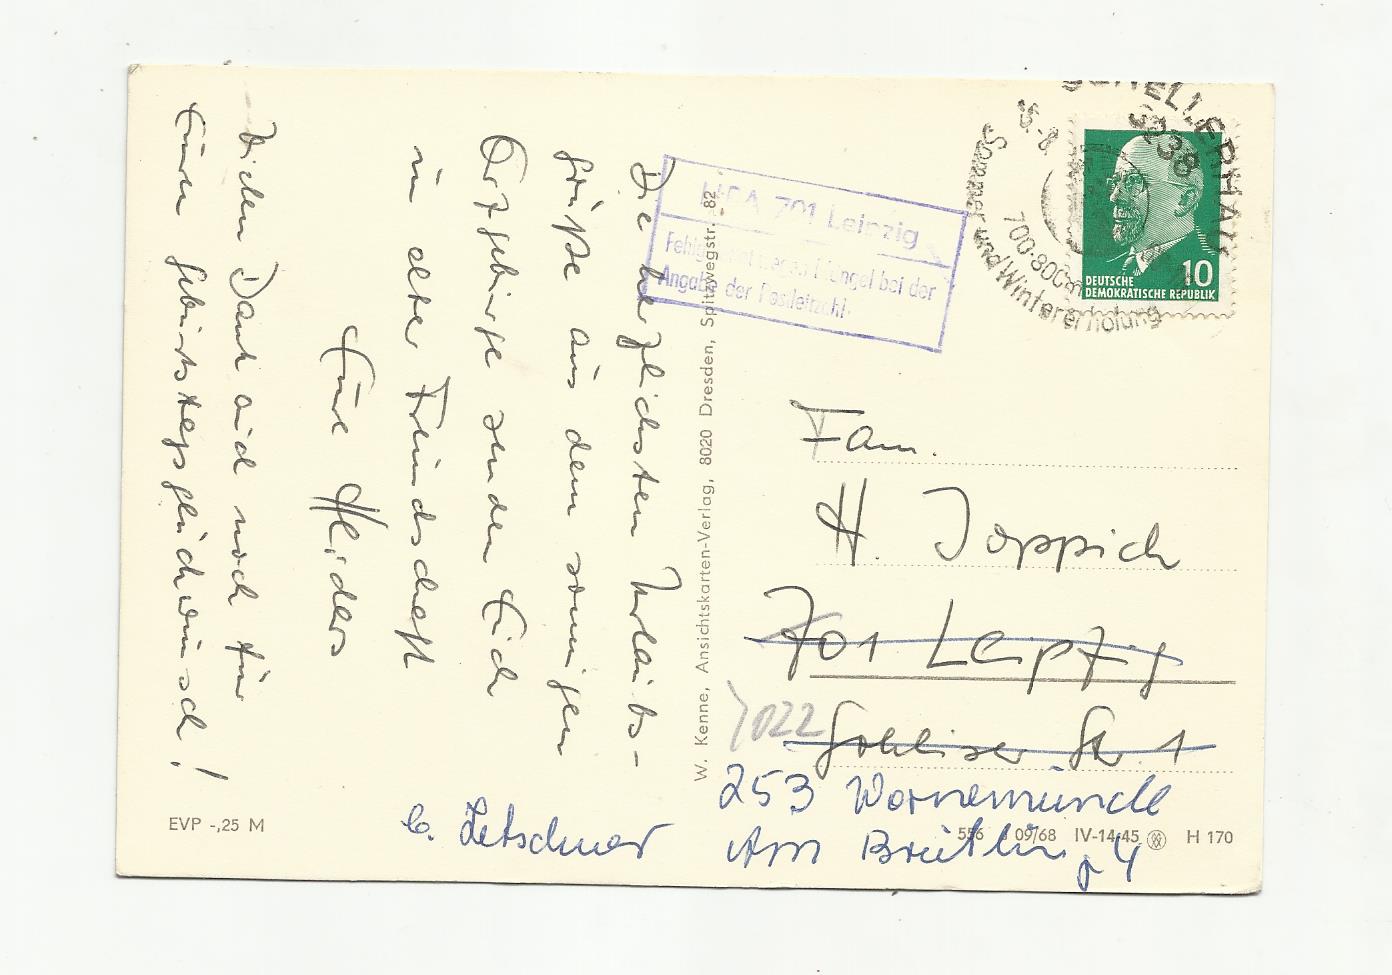 Die herzlichsten Urlaubs-
grüße aus dem sonnigen
Erzgebirge senden Euch
in alter Freundschaft
Eure
Vielen Dank auch noch für
Euren Geburtstagsglückwunsch!
EVP -,25 M
W. Kenne, Ansichtskarten-Verlag, 8020 Dresden, Spitzwegstr. 82
HPA 701 Leipzig
Fehlgeleitet wegen Mängel bei der
Angabe der Postleitzahl
SCHELLERHAU
8238
700-800m
Sommer und Wintererholung
DEUTSCHE
DEMOKRATISCHE REPUBLIK
10
Fam.
H. Joppich
701 Leipzig
7022
Gohliser Str. 1
253 Warnemünde
Am Breitling 4
b. Letschner
556 09/68 IV-14-45 H 170